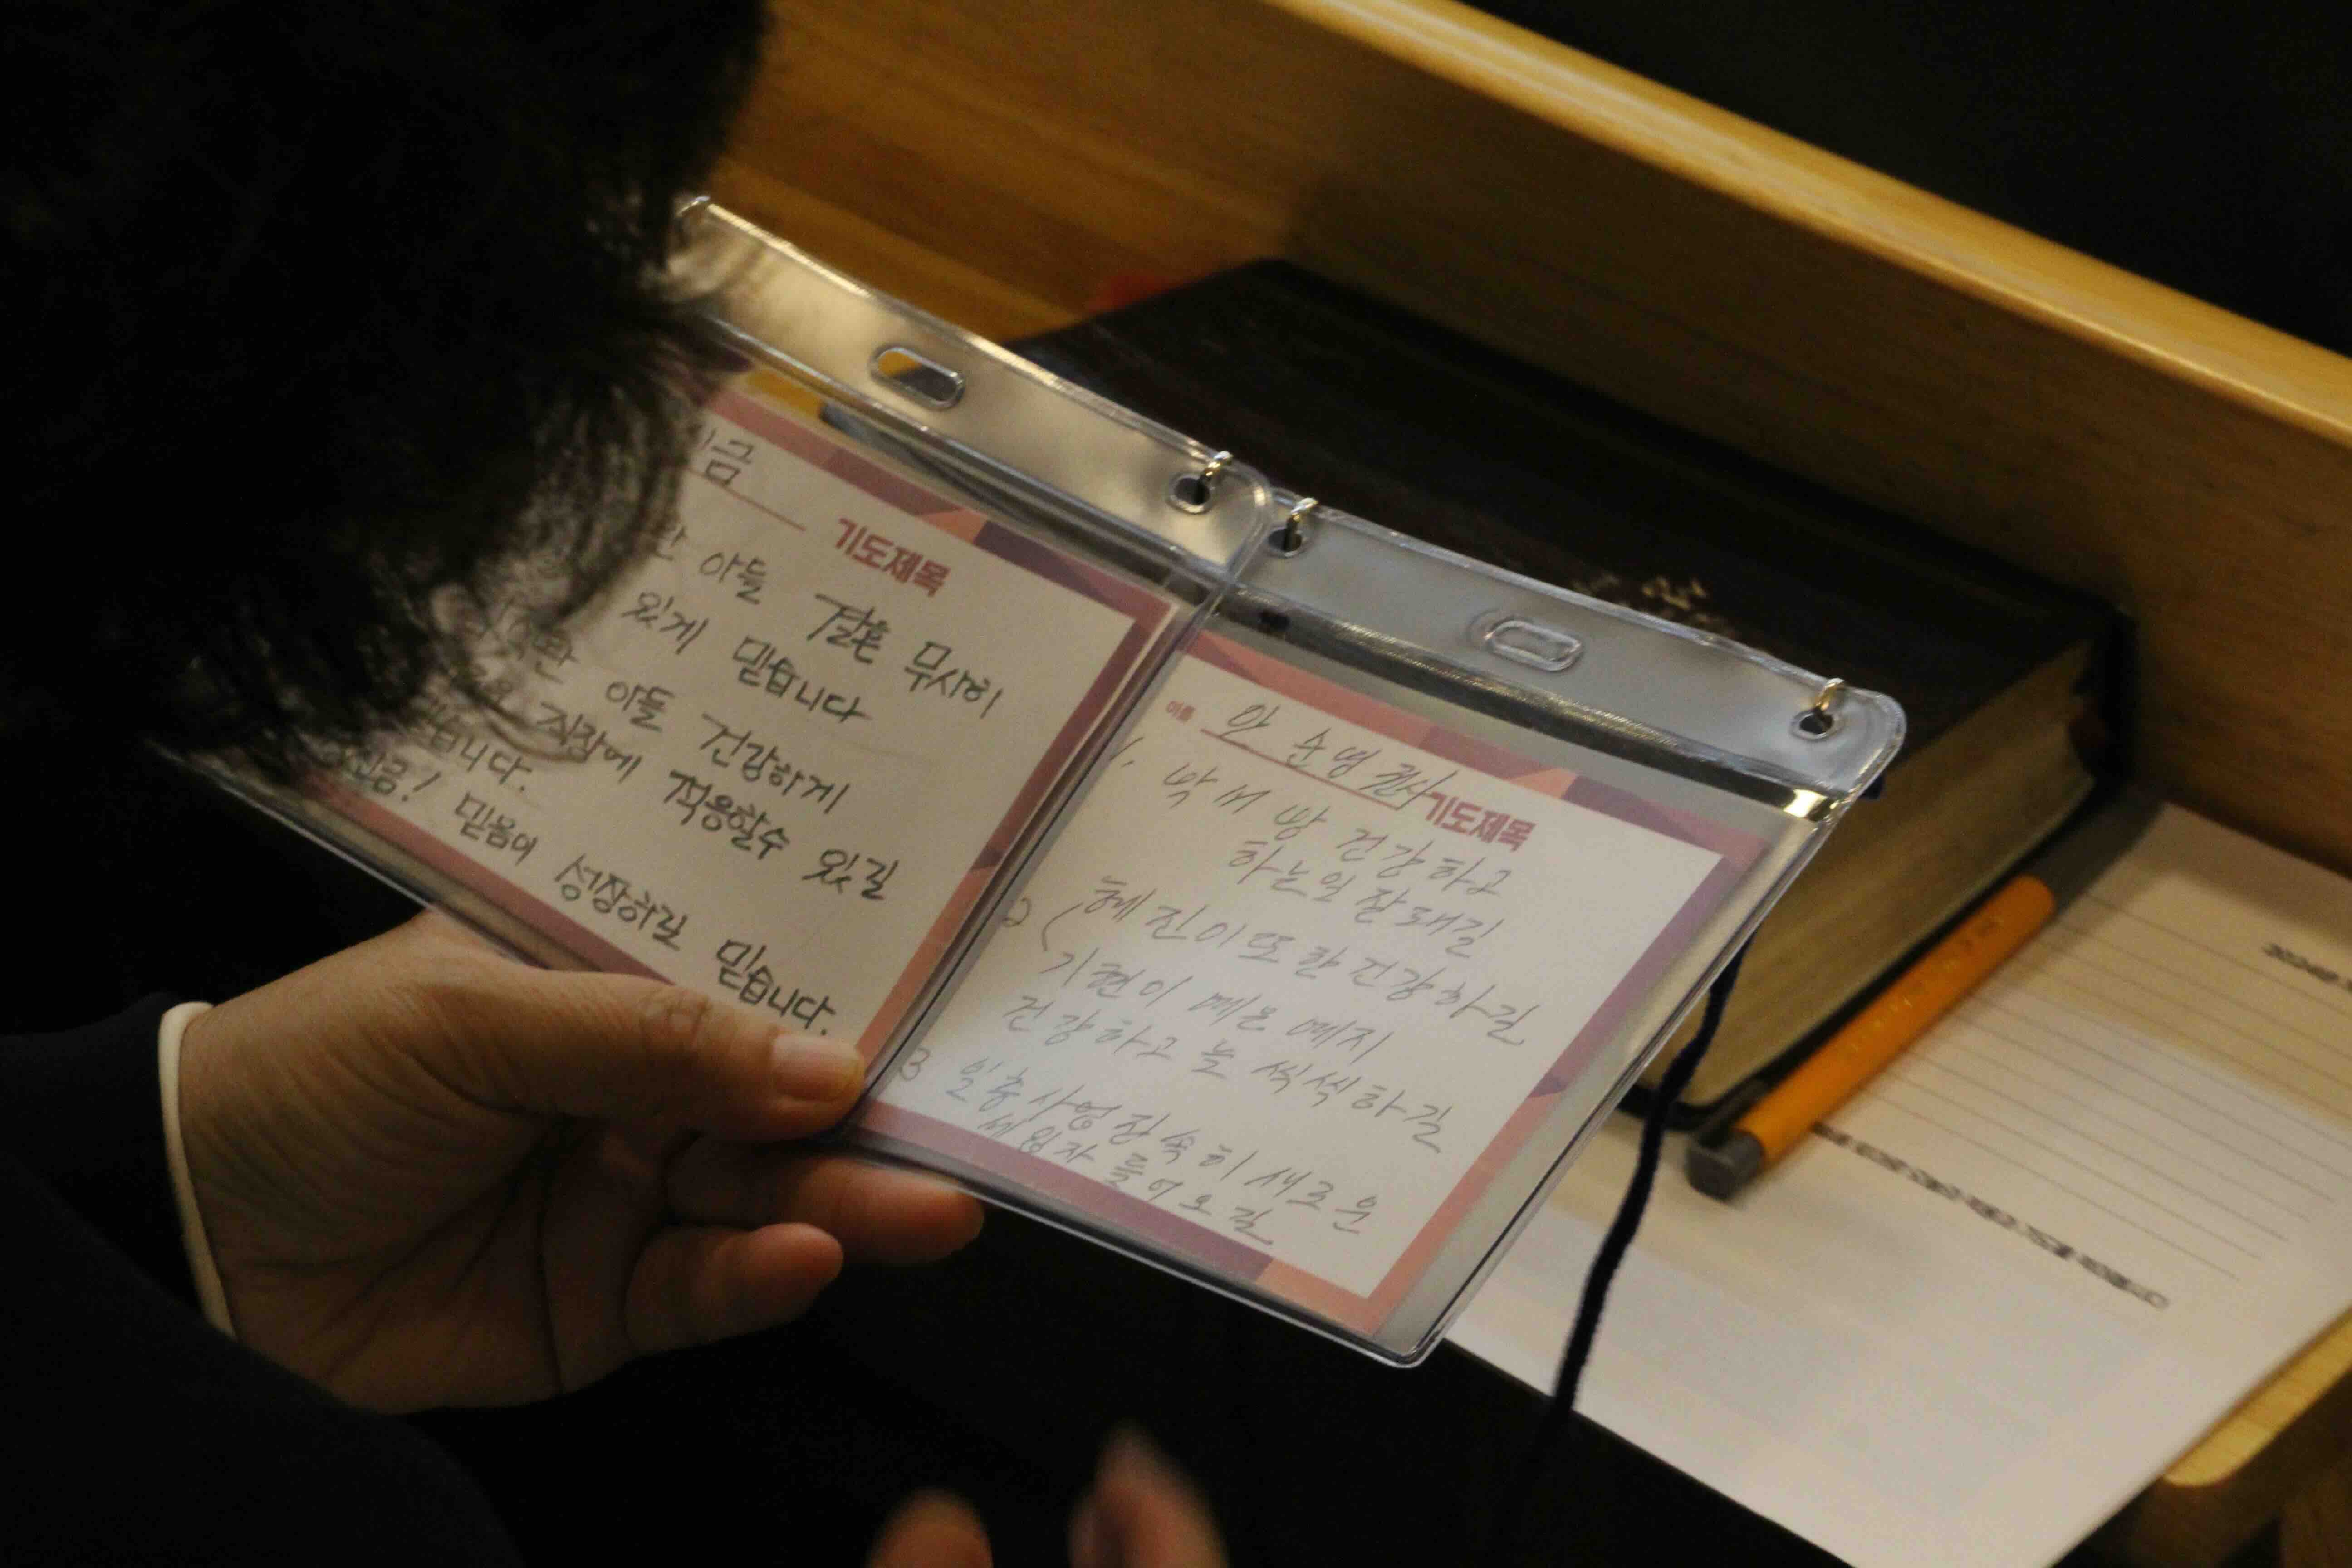 금
기도제목
아들 결혼 무사히
있게 믿습니다
아들 건강하게
직장에 적응할수 있길
습니다.
금! 믿음이 성장하길 믿습니다.
이름 안순영권사 기도제목
1. 박서방 건강하고
하는일 잘돼길
2 혜진이 또한 건강하길
기현이 예은 예지
건강하고 늘 씩씩하길
3 일층 사업장 속히 새로운
세입자 들어오길